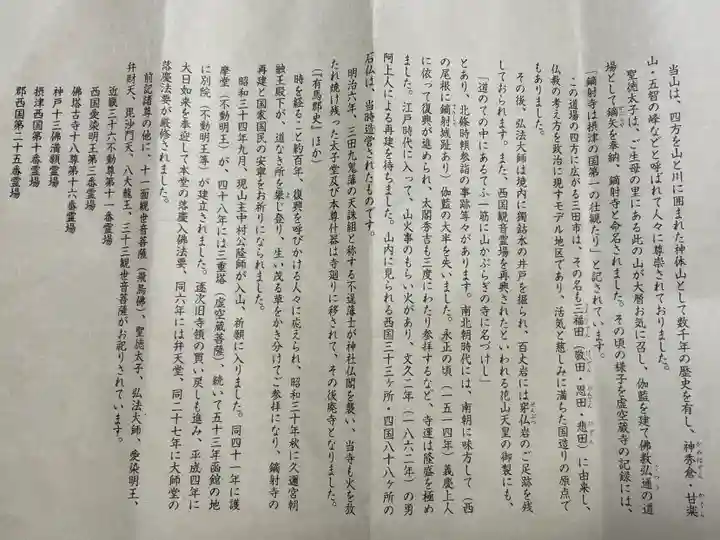 当山は、四方を山と川に囲まれた神体山として数千年の歴史を有し、神秀倉・甘楽
山・五智の峰などと呼ばれて人々に尊崇されておりました。
聖徳太子は、ご生母の里にある此の山が大層お気に召し、伽藍を建て佛教弘通の道
場として鏑矢を奉納、鏑射寺と命名されました。その頃の様子を虚空蔵寺の記録には、
「鏑射寺は摂津の国第一の壮観たり」と記されています。
この道場の四方に広がる三田市は、その名も三福田（敬田・恩田・悲田）に由来し、
仏教の考え方を政治に現すモデル地区であり、活気と慈しみに満ちた国造りの原点で
もありました。
その後、弘法大師は境内に獨鈷水の井戸を掘られ、百丈岩には穿仏岩のご足跡を残
しておられます。また、西国観音霊場を再興されたといわれる花山天皇の御製にも、
「道のての中にあるてふ一筋に山かぶらぎの寺に名づけし」
とあり、北條時頼参詣の事跡等々があります。南北朝時代には、南朝に味方して（西
の尾根に鏑射城趾あり）伽藍の大半を失いました。永正の頃（一五一四年）義慶上人
に依って復興が進められ、太閤秀吉も三度にわたり参拝するなど、寺運は隆盛を極め
ました。江戸時代に入って、山火事のもらい火があり、文久二年（一八六二年）の勇
阿上人による再建を待ちました。山内に見られる西国三十三ヶ所・四国八十八ヶ所の
石仏は、当時造営されたものです。
明治六年、三田九鬼藩の天誅組と称する不逞藩士が神社仏閣を襲い、当寺も火を放
たれ焼け残った太子堂及び本尊什器は寺廻りに移されて、その後廃寺となりました。
（『有馬郡史』ほか）
時を経ること約百年、復興を呼びかける人々に応えられ、昭和三十年秋に久邇宮朝
融王殿下が、道なき所を攀じ登り、生い茂る草をかき分けてご参拝になり、鏑射寺の
再建と国家国民の安寧をお祈りになられました。
昭和三十四年九月、現山主中村公隆師が入山、祈願に入りました。同四十一年に護
摩堂（不動明王）が、四十八年には三重塔（虚空蔵菩薩）、続いて五十三年函館の地
に別院（不動明王等）が建立されました。逐次旧寺領の買い戻しも進み、平成四年に
大日如来を奉迎して本堂の落慶入佛法要、同六年には弁天堂、同二十七年に大師堂の
落慶法要が厳修されました。
前記諸尊の他に、十一面観世音菩薩（飛鳥佛）、聖徳太子、弘法大師、愛染明王、
弁財天、毘沙門天、八大龍王、三十三観世音菩薩がお祀りされています。
近畿三十六不動尊第十一番霊場
西国愛染明王第三番霊場
佛塔古寺十八尊第十六番霊場
神戸十三佛満願霊場
摂津西国第十番霊場
郡西国第二十五番霊場